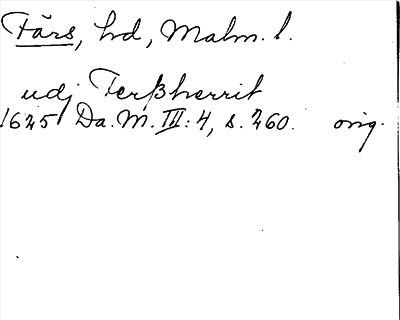 Färs, hd, Malm. l.
udj Terßherrit
1625 Da. M. III: 4, s. 260. orig.